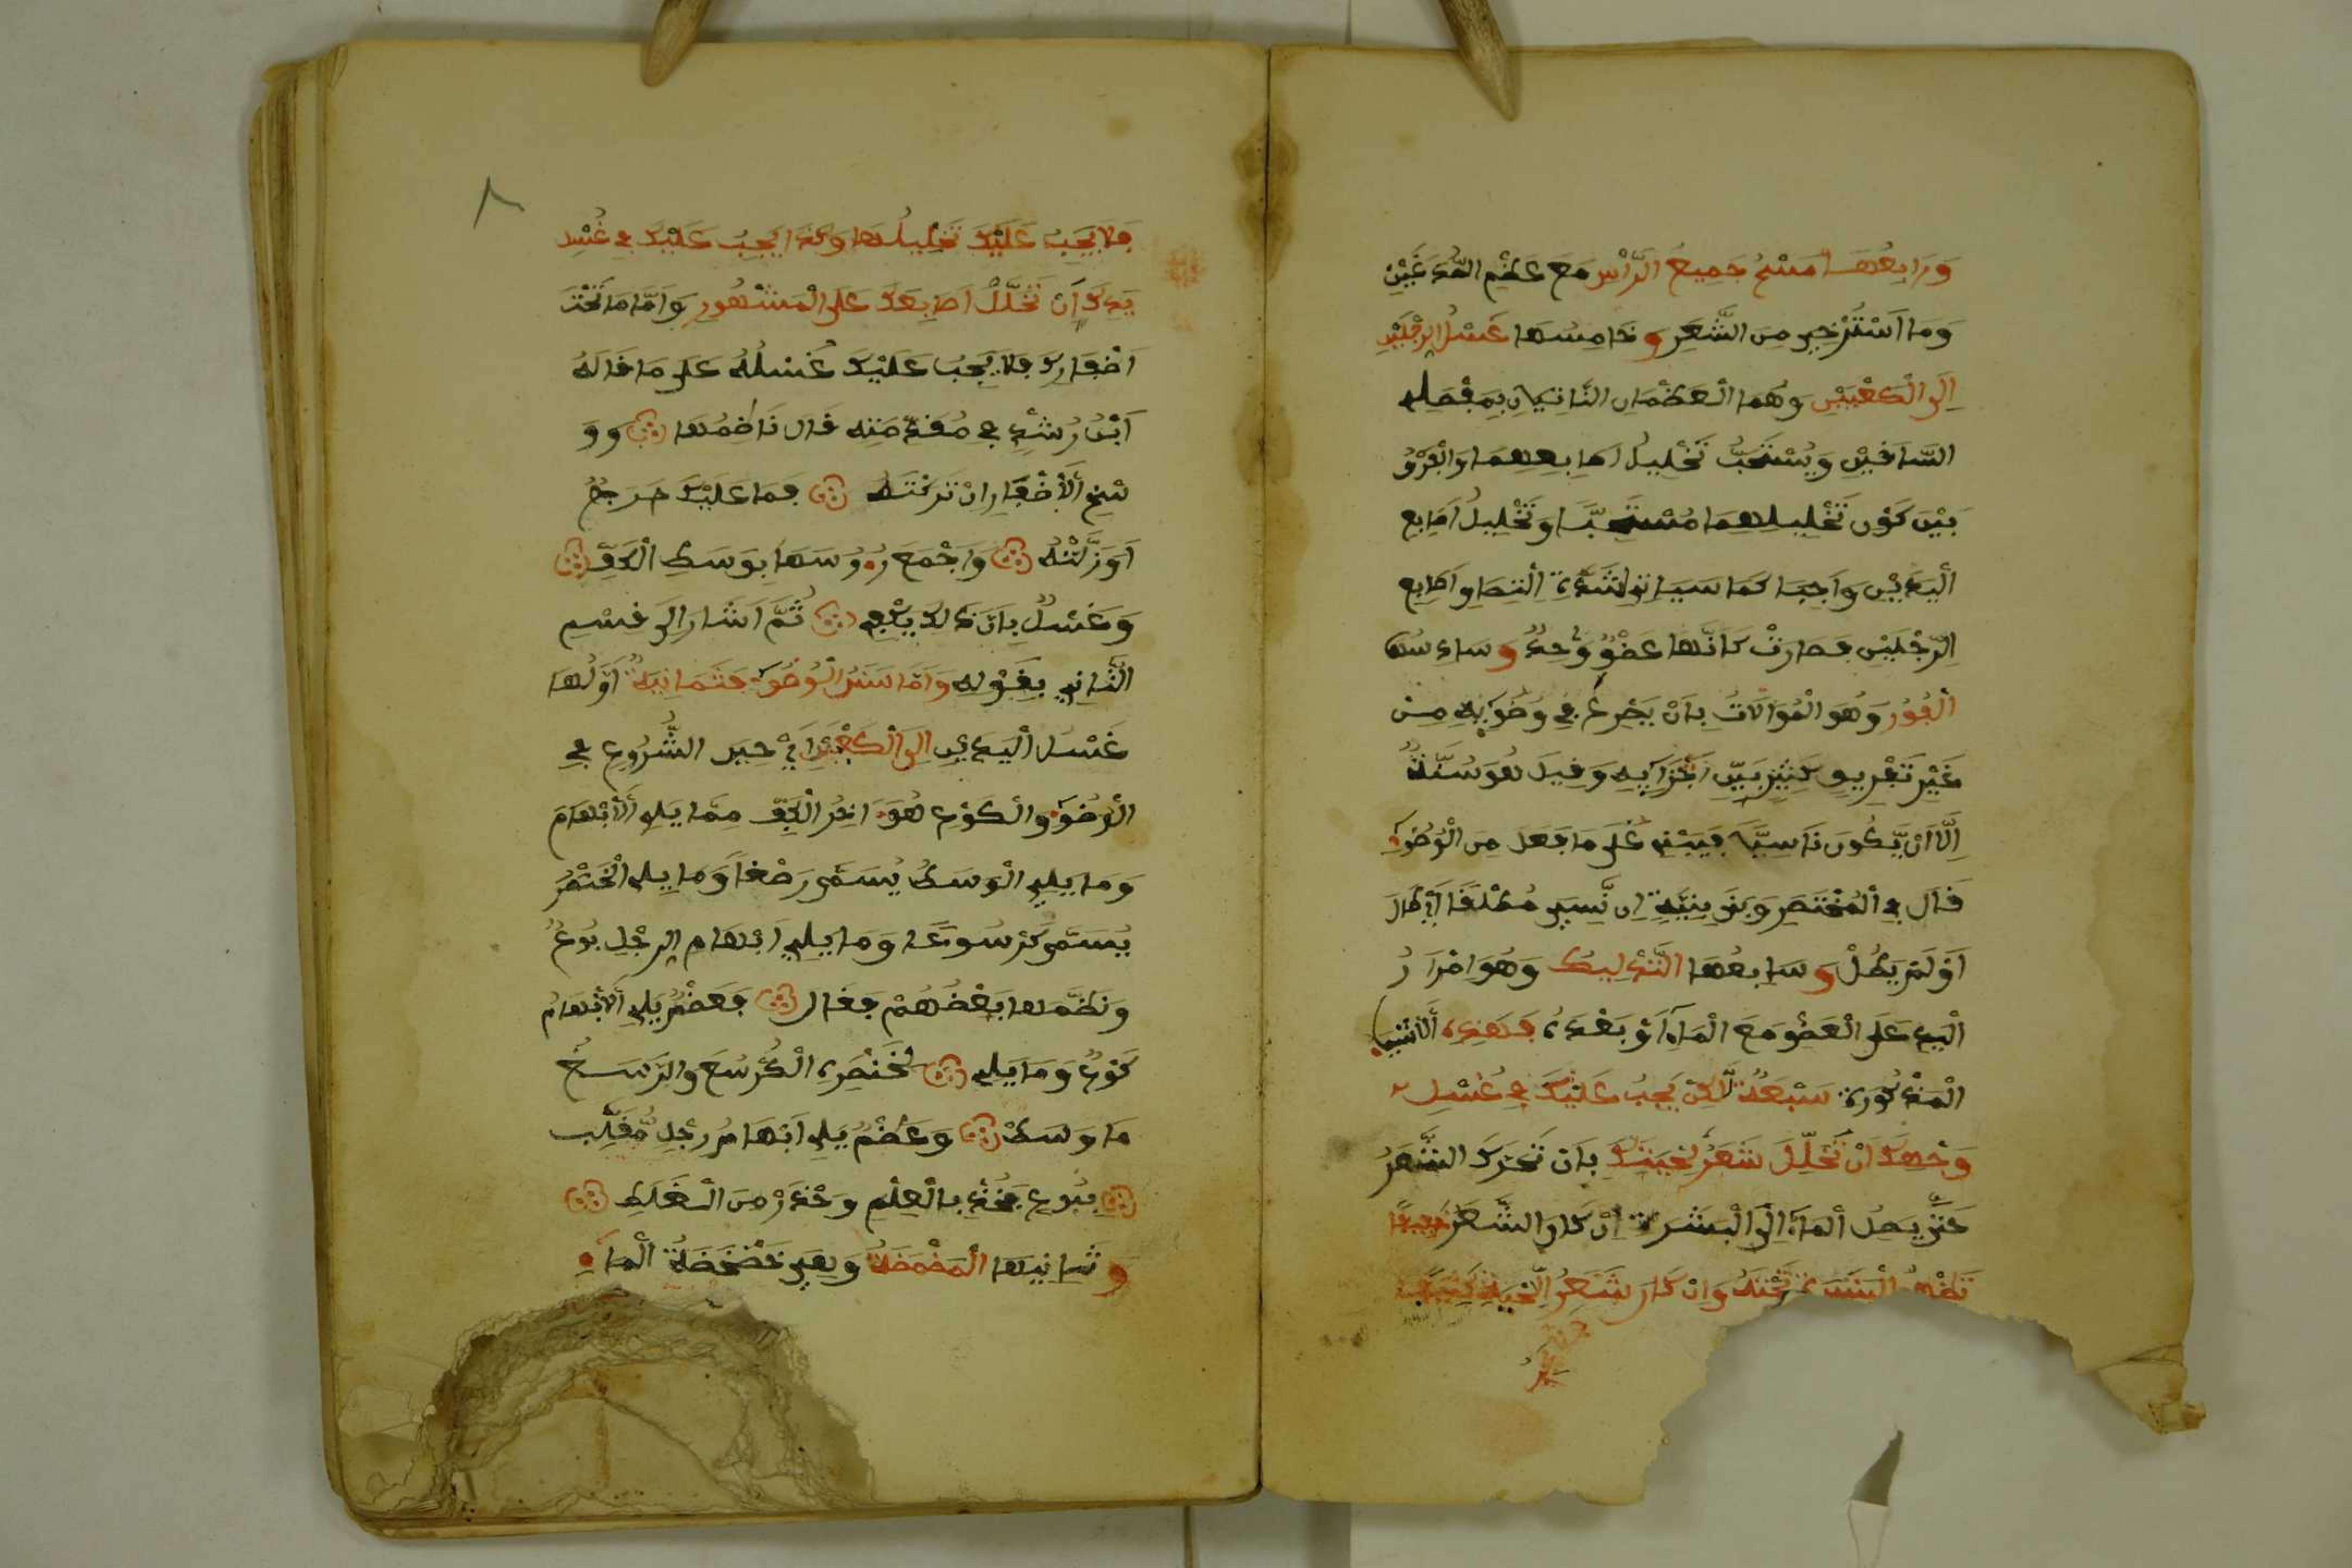 وَرَابِعُهَا مَسْحُ جَمِيعِ الرَّأْسِ مَعَ عَظْمِ الصُّدْغَيْنِ
وَمَا اَسْتَرْخِي مِنَ الشَّعَرِ وخَامِسُهَا غَسْلُ الرِّجْلَيْنِ
إِلَى الْكَعْبَيْنِ وَهُمَا الْعَظْمَانِ النَّاتِيَانِ بِمِفْصَلِي
السَّاقَيْنِ وَيُسْتَحَبُّ تَخْلِيلُ اَصَابِعِهِمَا وَالْفَرْقُ
بَيْنَ كَوْنِ تَخْلِيلِهِمَا مُسْتَحَبًّا وَتَخْلِيلُ اَصَابِعِ
الْيَدَيْنِ وَاجِبًا كَمَا سَيَاتِي لِشِدَّةِ الْتِصَاوِ اَصَابِعِ
الرِّجْلَيْنِ فَصَارَتْ كَاَنَّهَا عَضْوٌ وَٰحِدٌ وسَادِسُهَا
الْفَوْرُ وَهُوَ الْمُوَالَاتُ بِاَنْ يَجْرِعَ فِي وُضُوئِهِ مِنْ
غَيْرِ تَفْرِيوٍ كَثِيرٍ بَيْنَ اَجْزَائِهِ وَفِيلَ هُوَ سُنَّةٌ
اِلَّا اَنْ يَّكُونَ نَاسِيًّا فَيَبْنِي عَلَى مَا فَعَلَ مِنَ الْوُضُوءِ
قَالَ فِي الْمُخْتَصَرِ وَبَنَى بِنِيَّةٍ اِن نَّسِيَ مُطْلَقًا اَيْ طَالَ
اَوْ لَمْ يَطُلْ وَسَابِعُهَا التَّدْلِيكُ وَهُوَ اِمْرَارُ
الْيَدِ عَلَى الْعَضْوِ مَعَ الْمَاءِ اَوْ بَعْدَهُ فَهَذِهِ الَاشْيَاءُ
الْمَذْكُورَةُ سَبْعَةٌ لَّكِنْ يَجِبُ عَلَيْكَ فِي غُسْلِ
وَجْهِكَ اَنْ تُخَلِّلَ شَعَرَ لِحْيَتِكَ بِاَن تُحَرِّكَ الشَّعَرَ
حَتَّى يَصِلَ الْمَاءُ اِلَى الْبَشَرَةِ اِنْ كَانَ الشَّعَرُ خَفِيفًا
تَظْهَرُ الْبَشَرَةُ تَحْتَهُ وَاِنْ كَانَ شَعَرُ اللِّحْيَةِ كَثِيفًا
فَلَا يَجِبُ عَلَيْكَ تَخْلِيلُهَا وَكَذَا يَجِبُ عَلَيْكَ فِي غُسْلِ
يَدِكَ اَنْ تُخَلِّلْ اَصَابِعَكَ عَلَى الْمَشْهُورِ وَاَمَّا مَا تَحْتَ
اَظْفَارِكَ فَلَا يَجِبُ عَلَيْكَ غُسْلُهُ عَلَى مَا قَالَهُ
اَبْنُ رُشْدٍ فِي مُقَدِّمَتِهِ قَالَ نَاظِمُهَا وَوَ
سْخِ الَاظْفَارِ اِنْ تَرَكْتَهُ فَمَا عَلَيْكَ حَرَجٌ
اَوْ زَلْتَهُ وَاجْمَعْ رُءُوسَهَا بِوَسَطِ الْكَفِّ
وَغَسْلُ بِاَنَّ ذَالِكَ يَكْفِي ثُمَّ اَشَارَ اِلَى قِسْمِ
الثَّانِي بِقَوْلِهِ وَاَمَّا سَنَنُ الْوُضُوءِ فَثَمَانِيَةٌ اَوَّلُهَا
غَسْلُ الْيَدَيْنِ اِلَى الْكَعْبَيْنِ اَيْ حِينَ الشُّرُوعِ فِي
الْوُضُوءِ والْكَوْعِ هُوَ ءَاخِرُ الْكَفِّ مِمَّا يَلِي الَابْهَامَ
وَمَا يَلِي الْوَسَطَ يُسَمَّى رَصْغًا وَمَا يَلِي الْخَنْصَرَ
يُسَمَّى كَرْسُوعًا وَمَا يَلِي اَبْهَامَ الرِّجْلِ بُوعٌ
وَنَظَمَهَا بَعْضُهُمْ فَقَالَ فَعَظْمٌ يَلِي الَابْهَامَ
كَوْعٌ وَمَا يَلِي لِخَنْصَرِهِ الْكُرْسُعَ وَالرَّسَخُ
مَا وَسَطْ وَعَظْمٌ يَلِي اَبْهَامَ رِجْلٍ مُّلَقَّبٌ
بِبُوعٍ فَخُذْ بِالْعِلْمِ وَحْذَرْ مِنَ الْغَلَطِ
وثَانِيهَا الْمَضْمَضَةُ وَهِيَ خَضْخَضَةُ الْمَاءِ